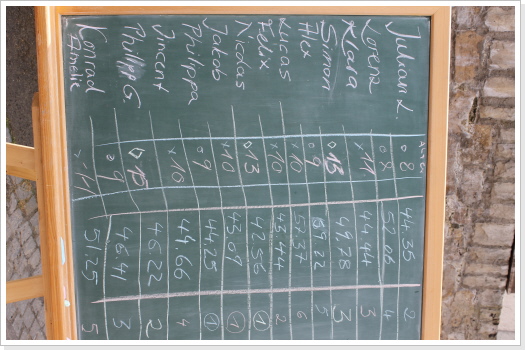 Julian L. o 8 44.35 2
Lorenz o 8 52.06 4
Klara x 11 44.44 3
Simon o 13 49.78 3
Alex o 9 59.22 5
Lucas x 10 57.37 6
Felix x 10 43.44 2
Nicolas o 13 42.56 1
Jakob x 10 43.09 1
Philippa o 9 44.25 1
Vincent x 10 49.66 4
Philipp G. o 15 46.22 2
Konrad o 9 46.41 3
Amelie 11 51.25 5